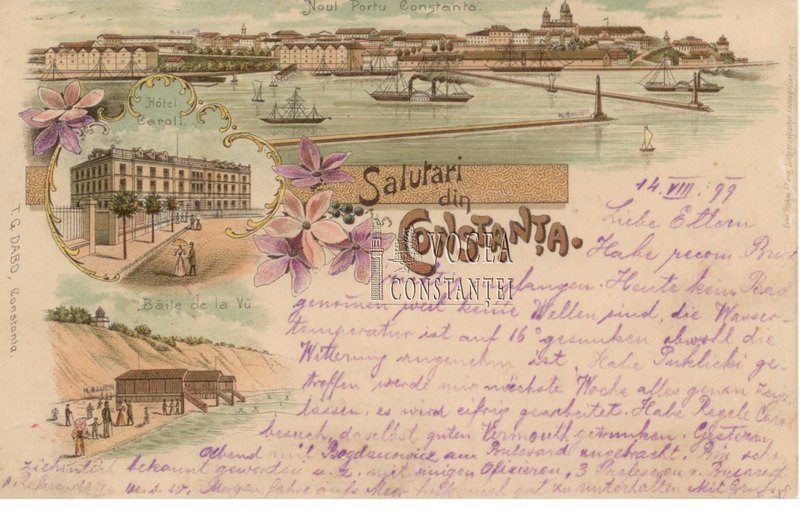 Noul Portu Constanta.
Hôtel
Carol I.
Salutari
din
CONSTANȚA.
VOCEA
CONSTANȚEI
Băile de la Vii
T. G. DABO, Constanta.
14. VIII. 99
Liebe Eltern
Habe recom. Brief
erlangen. Heute kein Bad
genomen weil keine Wellen sind, die Wasser-
temperatur ist auf 16° gesunken obwohl die
Witterung angenehm ist. Habe Puklicki ge-
troffen werde mir nächste Woche alles genau zeigen
lassen, es wird eifrig gearbeitet. Habe Regele Carol
besucht, daselbst guten Vermouth getrunken. Gestern
Abend mit Bogdanowicz am Bulevard zugebracht. Bin schon
ziemlich bekannt geworden u. z. mit einigen Ofizieren, 3 Profesoren v. Bucarest
u. s. w. Morgen fahre aufs Meer gut zu unterhalten Mit